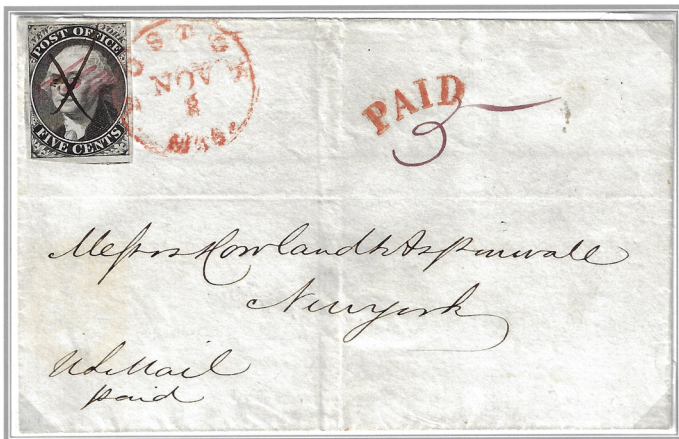 POST OFFICE
FIVE CENTS
BOSTON
8
MASS.
PAID
5
Messrs Howland & Aspinwall
New york
U S Mail
paid